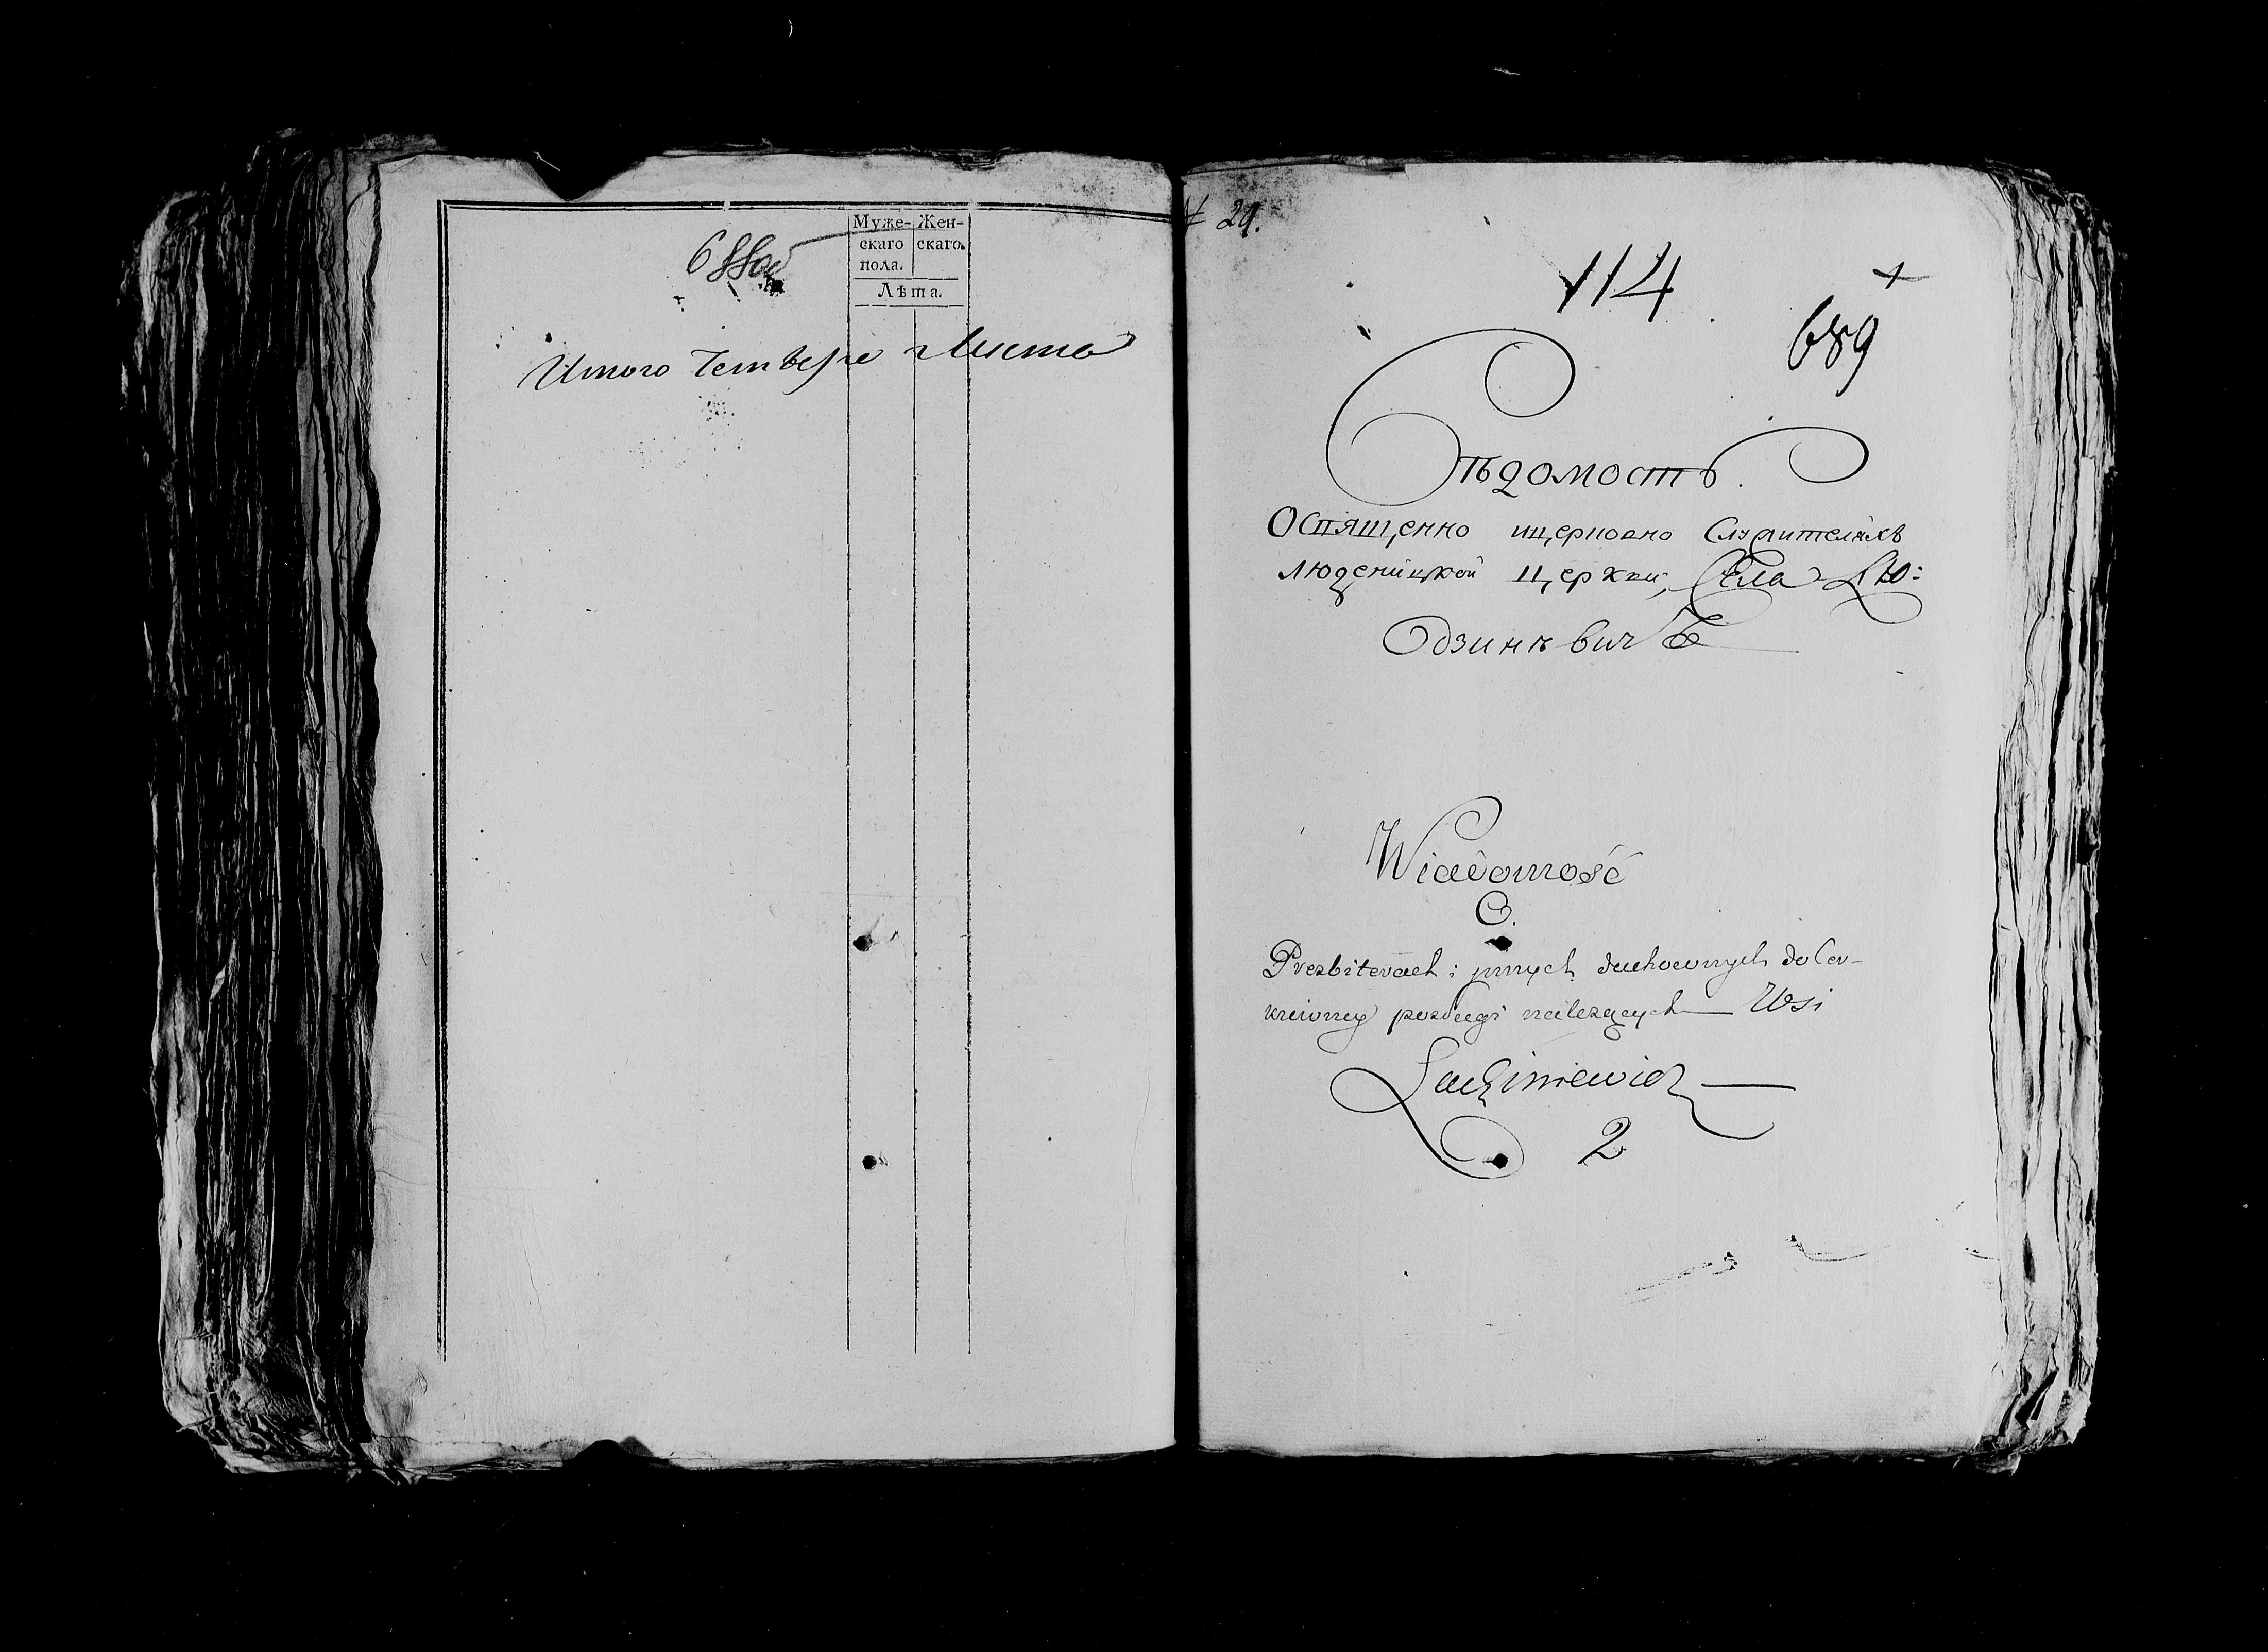 688 об
Муже- Жен-
скаго скаго.
пола.
Лѣта.
Итого Четвере Листа
29.
114
689
Вѣдомость.
О Священно ицерковно Служителяхъ
люденицкой церкви, Села Лю:
дзинѣвичъ
Wiadomość
O.
Prezbiterach i jnnych duchownych do Cer-
kiewney posługi należących Wsi
Ludziniewicz
2